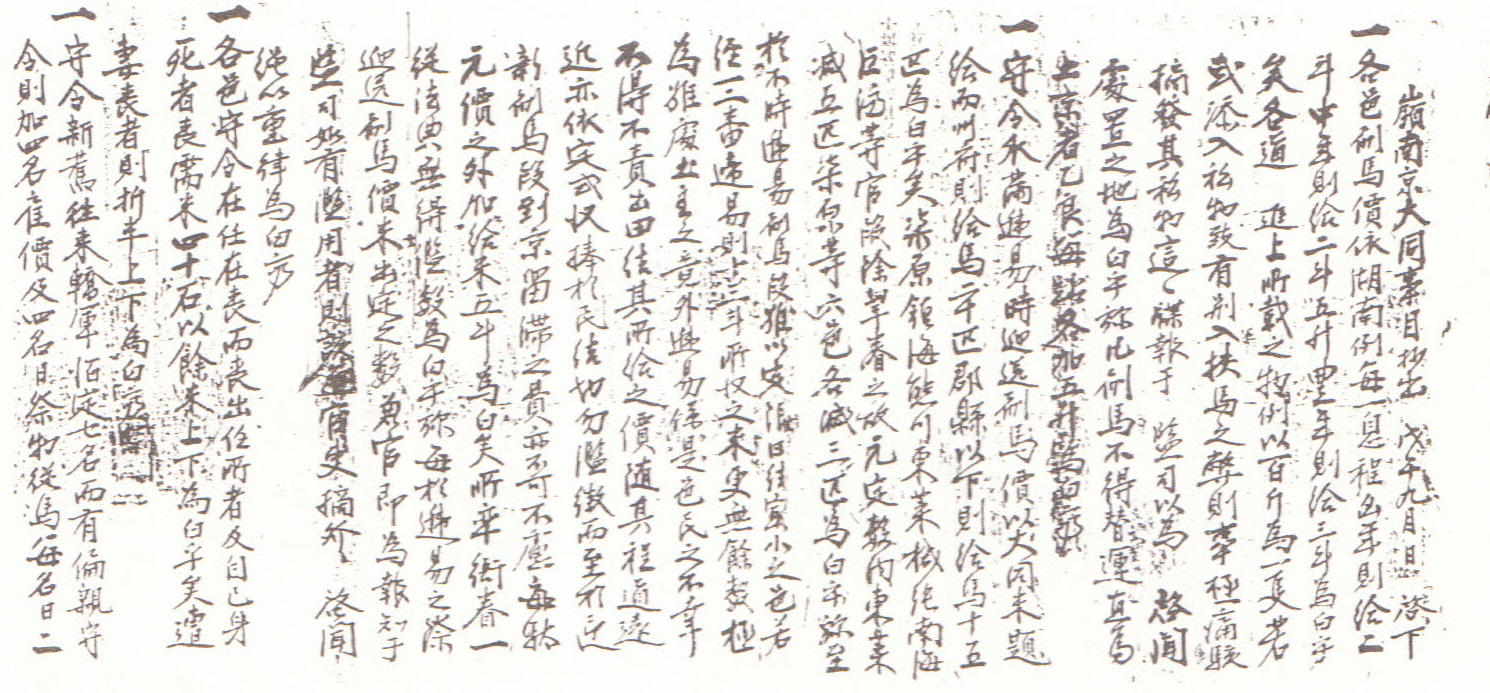 嶺南京大同事目抄出 戊午九月日 啓下
一各邑刷馬價依湖南例每一息程凶年則給二
斗中年則給二斗五升豊年則給三斗爲白乎
矣各道 進上所載之物例以百斤爲一隻若
或添入私物致有別入扶馬之弊則摘極痛駭
摘發其私物這這牒報于 監司以爲 啓聞
處置之地爲白乎旀此刷馬不得替運直爲
上京者乙良每駄各加五升爲白齊
一守令瓜滿遞易時迎送刷馬價以大同米題
給而州府則給馬二十匹郡縣以下則給馬十五
匹爲白乎矣柒原鎭海熊川東萊機張南海
巨濟等官段除卜春之故元定數內東萊
減五匹柒原等六邑各減三匹爲白乎旀至
於不時遞易刷馬段雖以定 殘小之邑若
經一二番遞易則上三斗所收之米更無餘數極
爲難處土主之意外遞易係是邑民之不幸
不得不責出田結其所給之價隨其程道遠
近亦依定式收捧於民結切勿濫徵而至於近
新刷馬段到京留滯之費亦不可不慮每駄
元價之外加給米五斗爲白矣所率衙眷一
從法典無得濫數爲白乎旀每於遞易之際
迎送刷馬價米出定之數 官即爲報知于
監司如有濫用者則 官吏摘發 啓聞
從以重律爲白齊
一各邑守令在任在喪而喪出任所者及自己身
死者喪需米四十石以餘米上下爲白乎矣遭
妻喪者則折半上下爲白齊
一守令新舊往來轎軍 定七名而有偏親守
令則加四名雇價及四名日祭物從馬每名日二